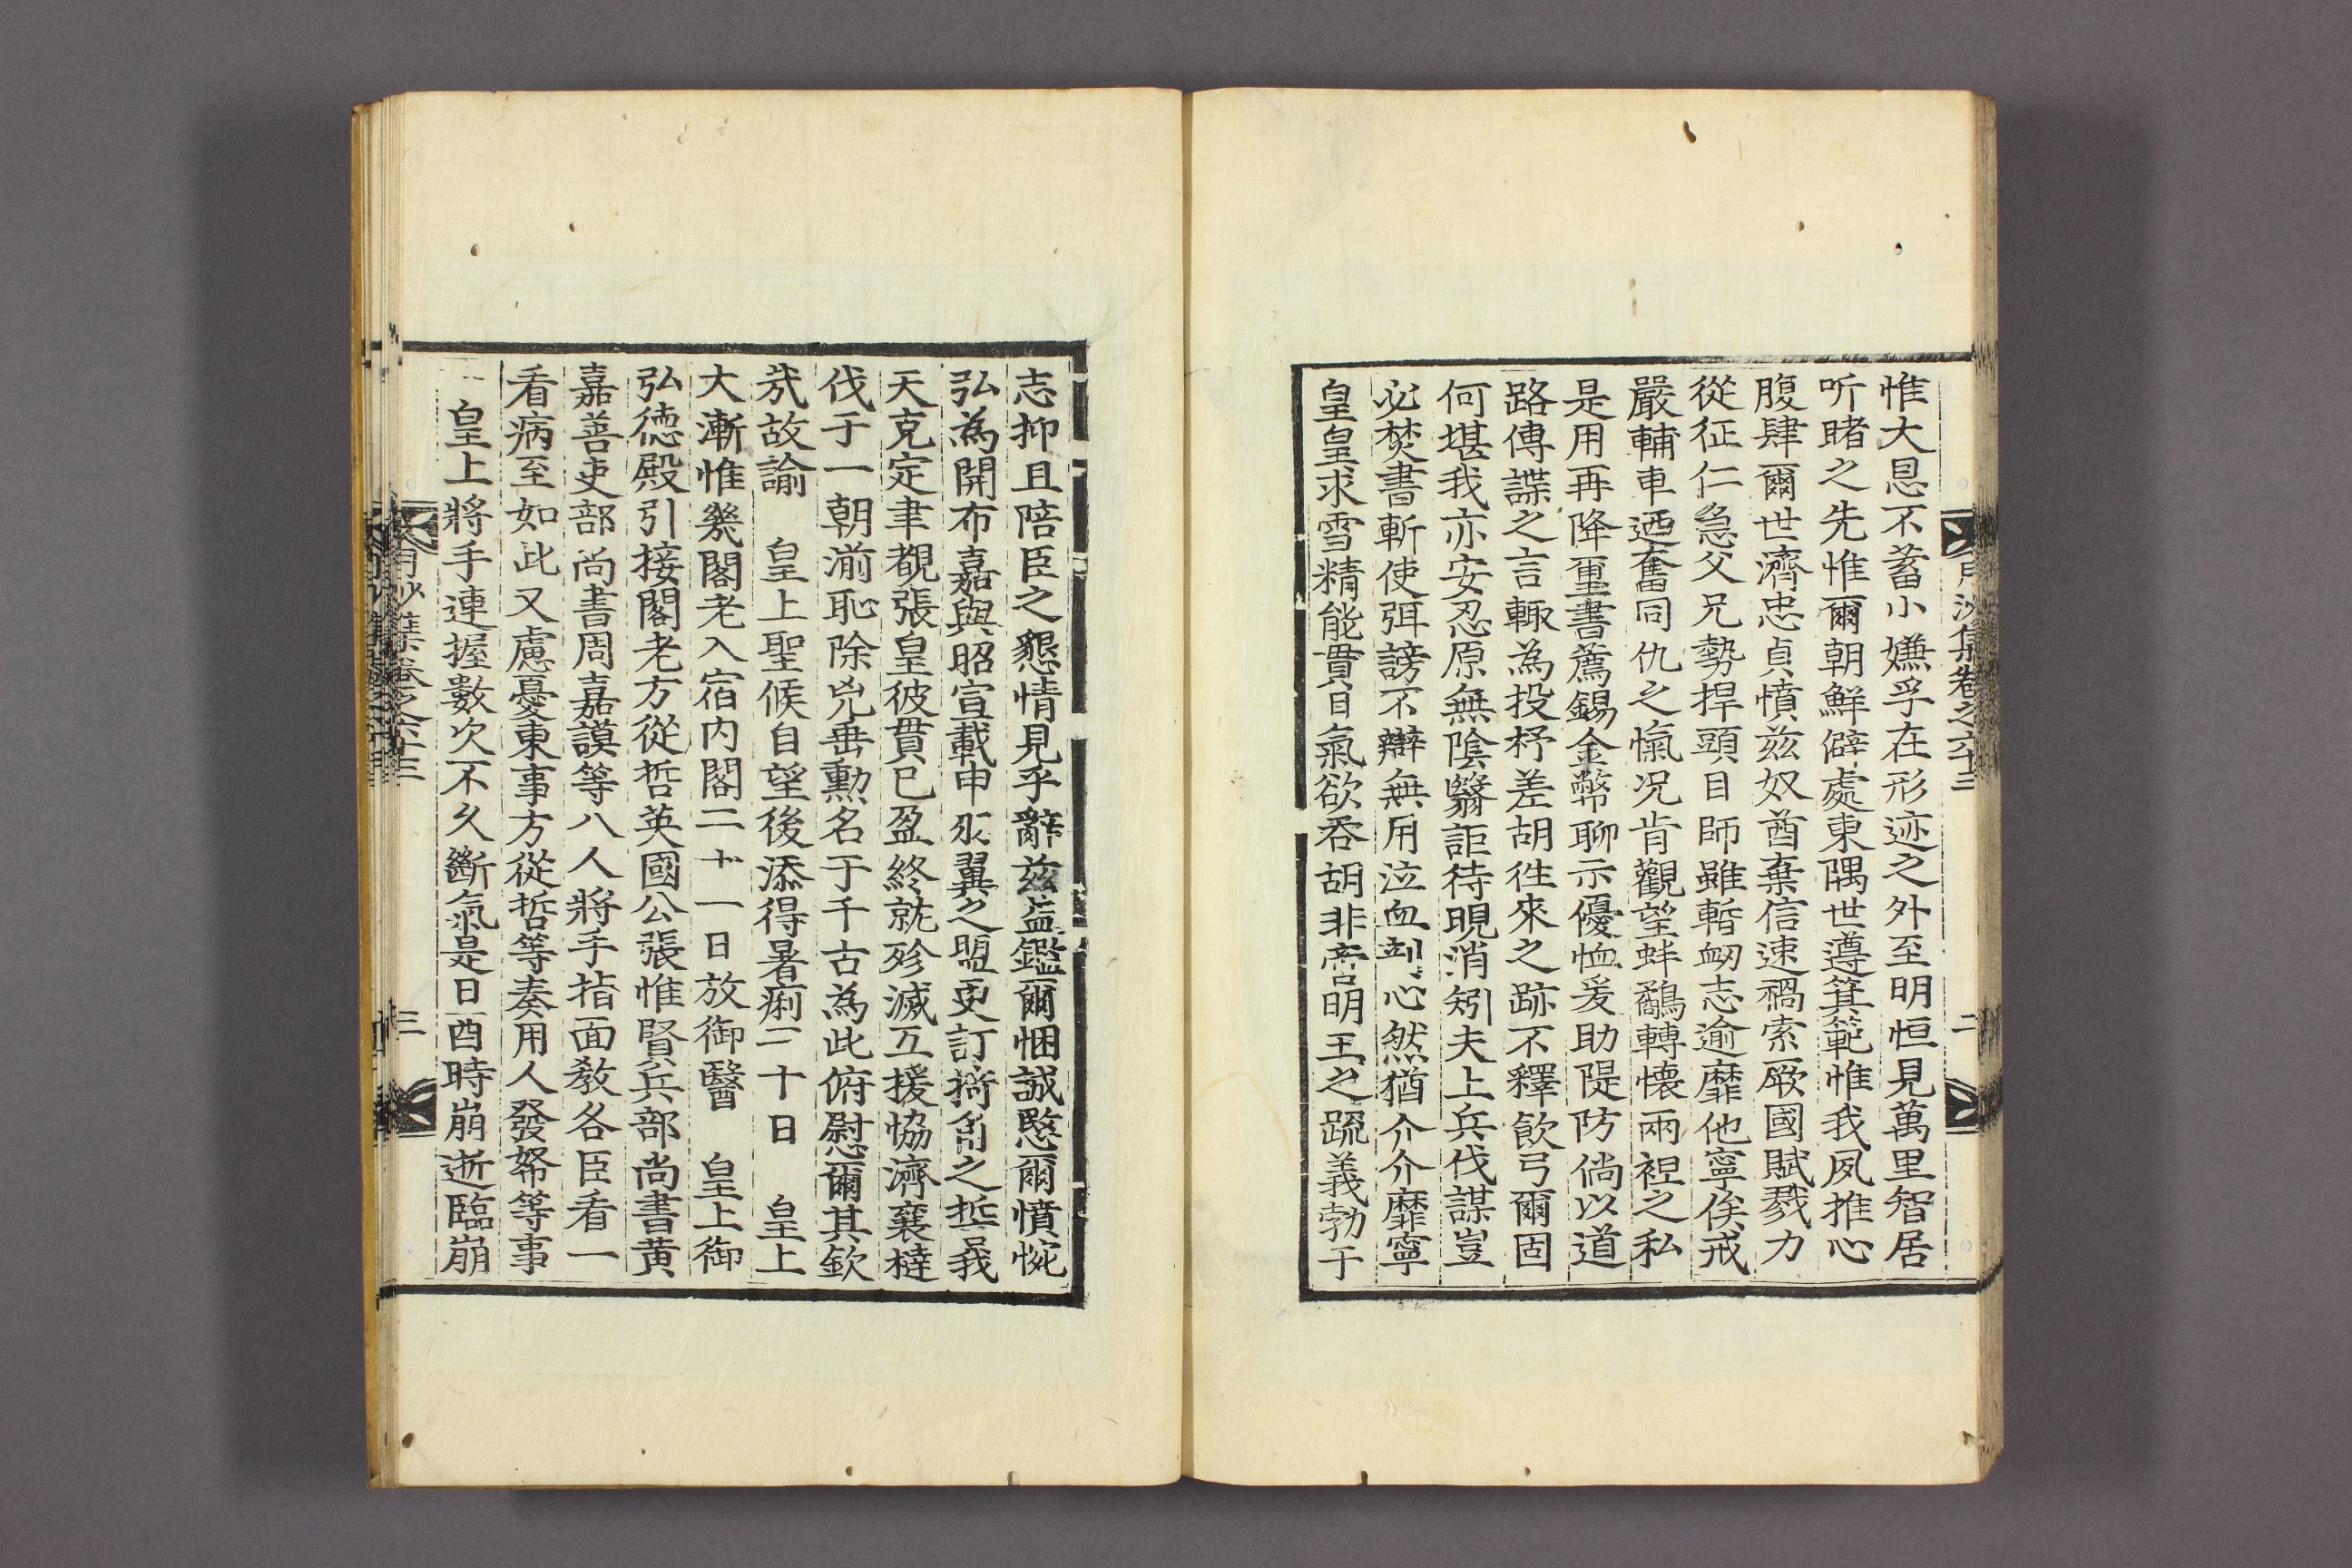 月沙集卷之六十三 二
惟大恩不蓄小嫌孚在形迹之外至明恒見萬里智居
听睹之先惟爾朝鮮僻處東隅世遵箕範惟我夙推心
腹肆爾世濟忠貞憤兹奴酋棄信速禍索厥國賦戮力
從征仁急父兄勢捍頭目師雖暫衂志逾靡他寧俟戒
嚴輔車迺奮同仇之愾况肯觀望蚌鷸轉懷兩袒之私
是用再降璽書薦錫金幣聊示優恤爰助隄防倘以道
路傳諜之言輙為投杼差胡徃來之跡不釋飮弓爾固
何堪我亦安忍原無陰翳詎待晛消矧夫上兵伐謀豈
必焚書斬使弭謗不辯無用泣血刲心然猶介介靡寧
皇皇求雪精能貫日氣欲吞胡非啻明王之䟽義勃于
志抑且陪臣之懇情見乎辭兹益鑑爾悃誠愍爾憤惋
弘為開布嘉與昭宣載申氷翼之盟更訂掎角之抵我
天克定聿覩張皇彼貫已盈終就殄滅互援恊濟襄撻
伐于一朝湔恥除兇垂勲名于千古為此俯慰爾其欽
㢤故諭 皇上聖候自望後添得暑痢二十日 皇上
大漸惟幾閣老入宿内閣二十一日放御醫 皇上御
弘德殿引接閣老方從哲英國公張惟賢兵部尚書黄
嘉善吏部尚書周嘉謨等八人將手指面教各臣看一
看病至如此又慮憂東事方從哲等奏用人發帑等事
皇上將手連握數次不久斷氣是日酉時崩逝臨崩
月沙集卷之六十三 三